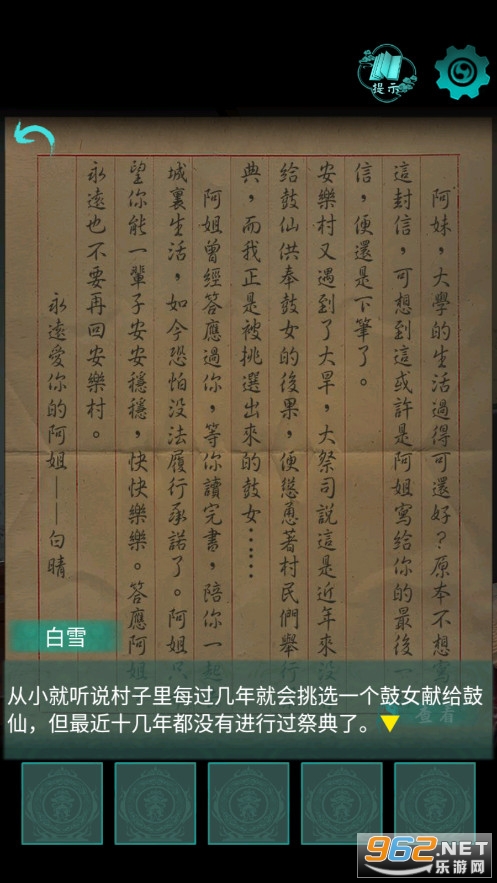 提示
阿妹，大學的生活過得可還好？原本不想寫
這封信，可想到這或許是阿姐寫給你的最後一
信，便還是下筆了。
安樂村又遇到了大旱，大祭司說這是近年來沒
給鼓仙供奉鼓女的後果，便慫恿著村民們舉行
典，而我正是被挑選出來的鼓女……
阿姐曾經答應過你，等你讀完書，陪你一起
城裏生活，如今恐怕没法履行承諾了。阿姐只
望你能一輩子安安穩穩，快快樂樂。答應阿姐
永遠也不要再回安樂村。
永遠愛你的阿姐——白晴
白雪
查看
从小就听说村子里每过几年就会挑选一个鼓女献给鼓
仙，但最近十几年都没有进行过祭典了。
962.NET
乐游网